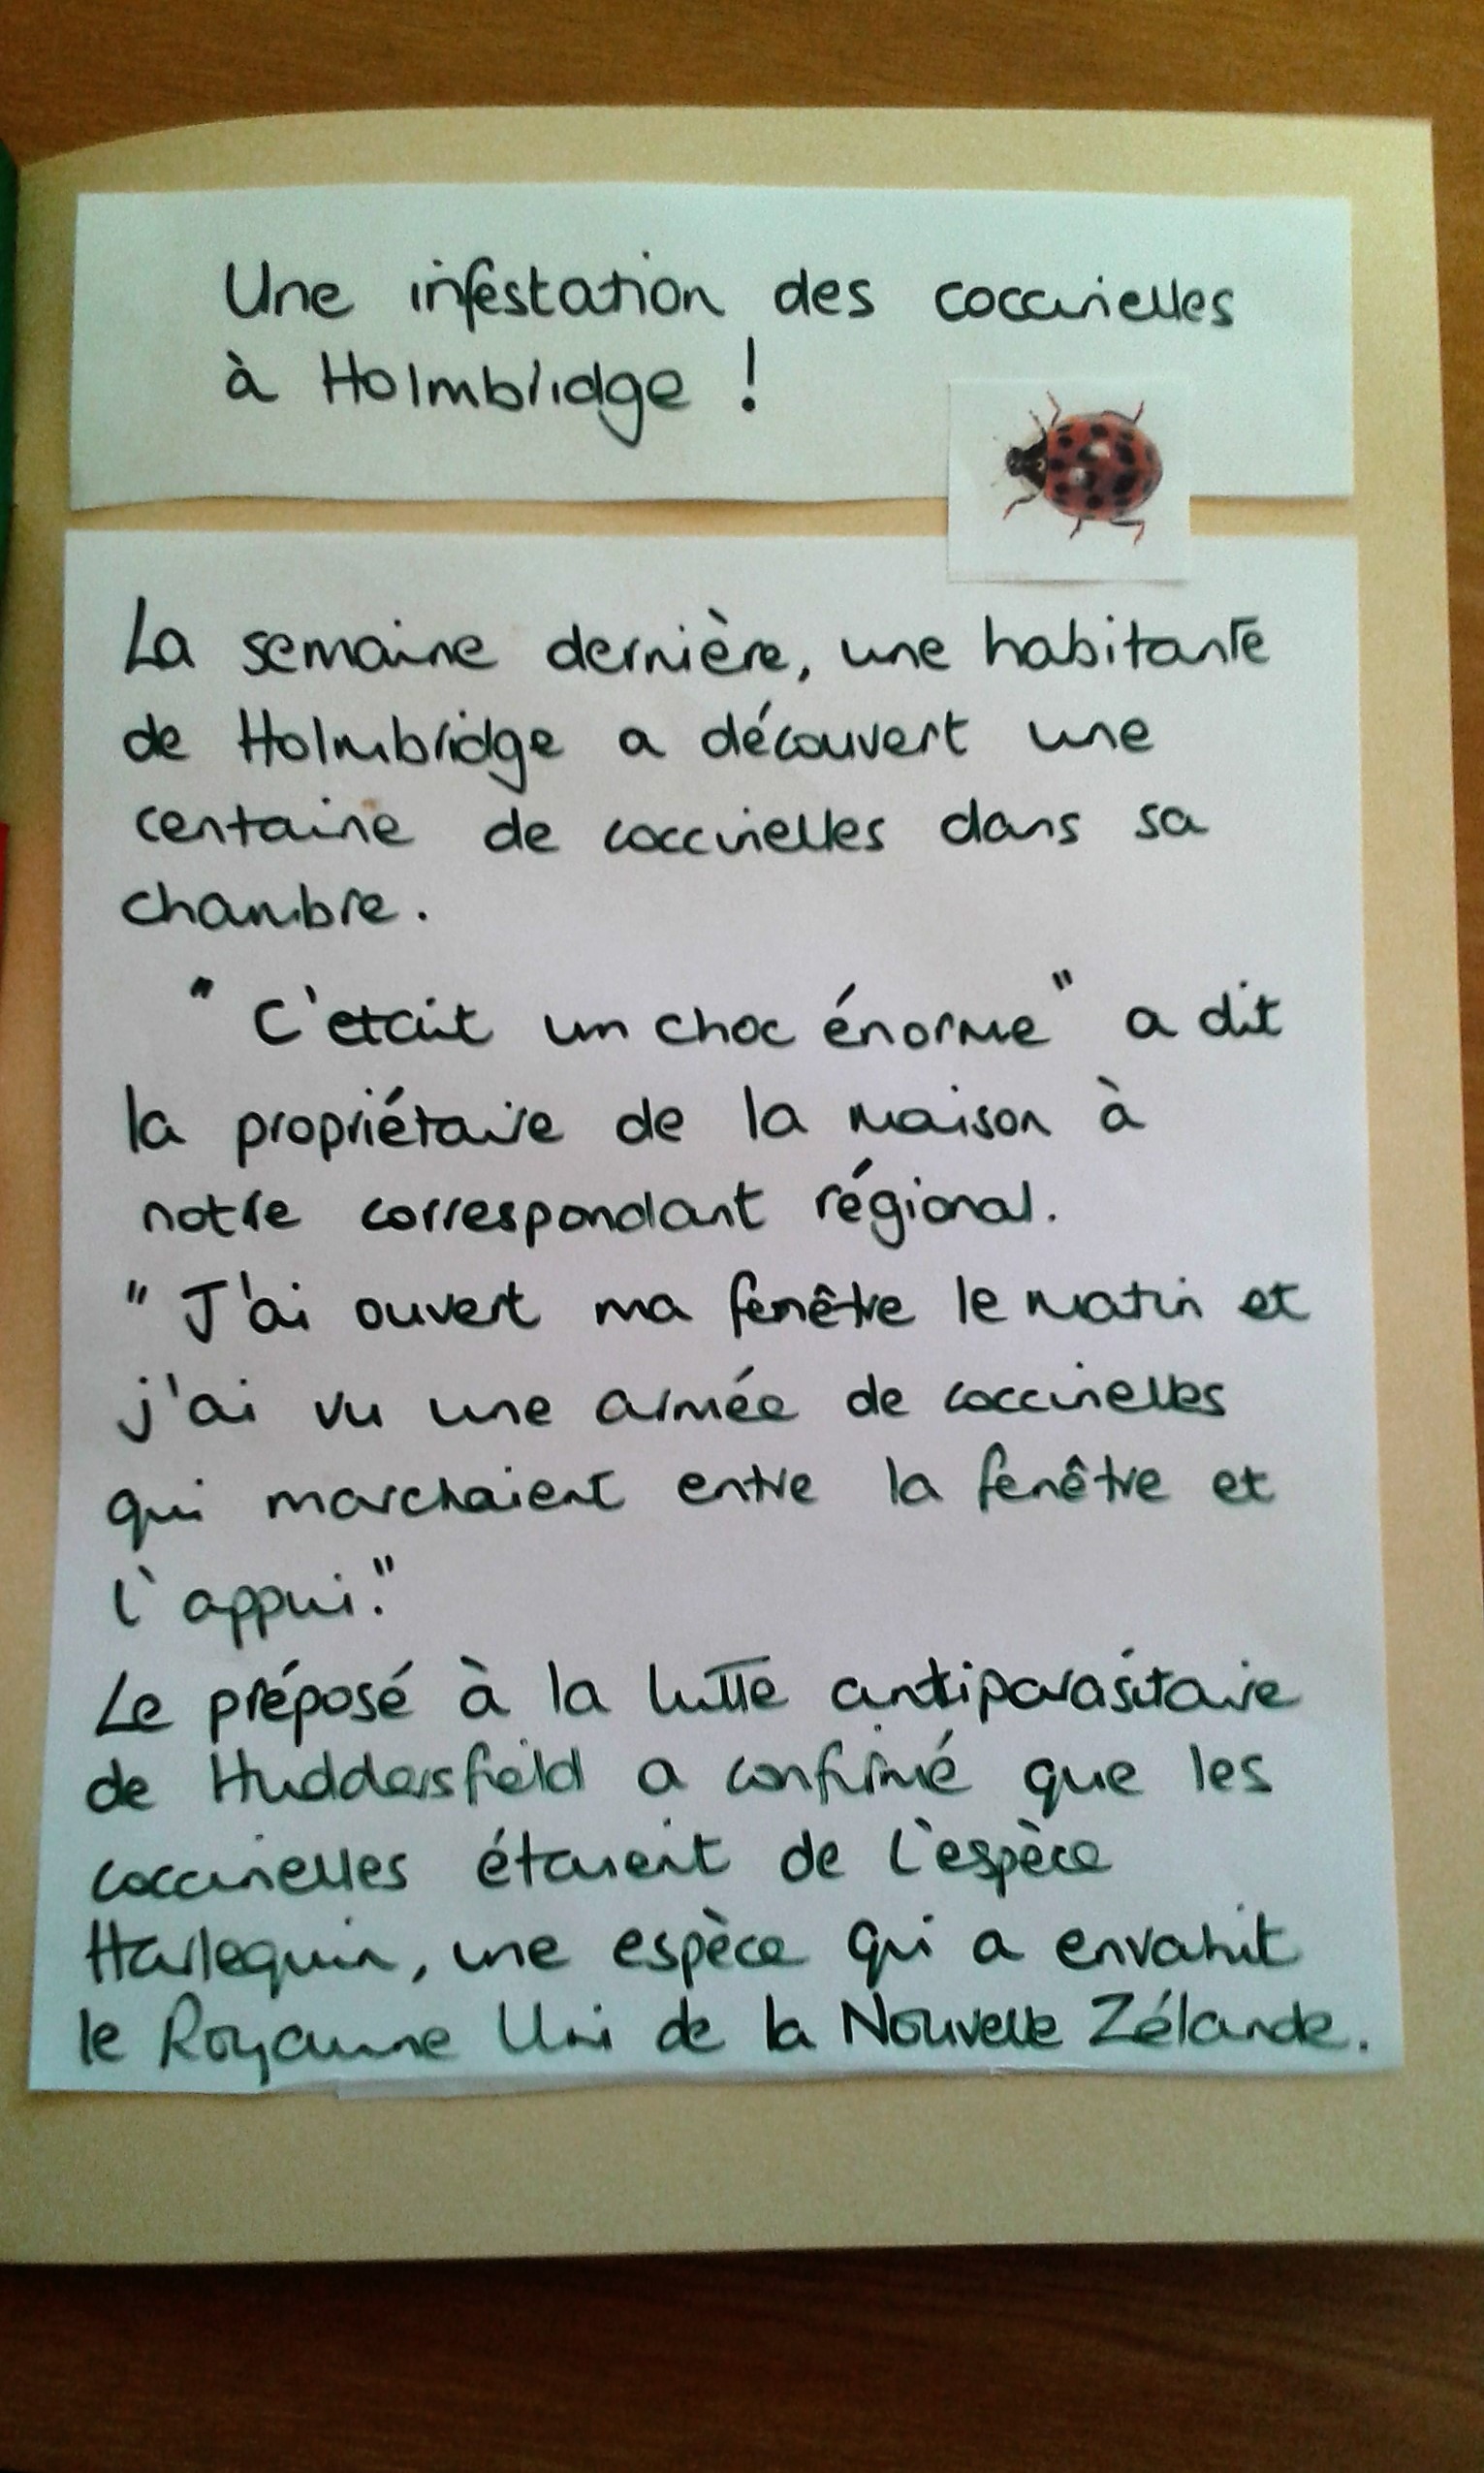 Une infestation des coccinelles
à Holmbridge !
La semaine dernière, une habitante
de Holmbridge a découvert une
centaine de coccinelles dans sa
chambre.
"C'etait un choc énorme" a dit
la propriétaire de la maison à
notre correspondant régional.
"J'ai ouvert ma fenêtre le matin et
j'ai vu une armée de coccinelles
qui marchaient entre la fenêtre et
l'appui."
Le préposé à la lutte antiparasitaire
de Huddersfield a confirmé que les
coccinelles étaient de l'espèce
Harlequin, une espèce qui a envahit
le Royaume Uni de la Nouvelle Zélande.